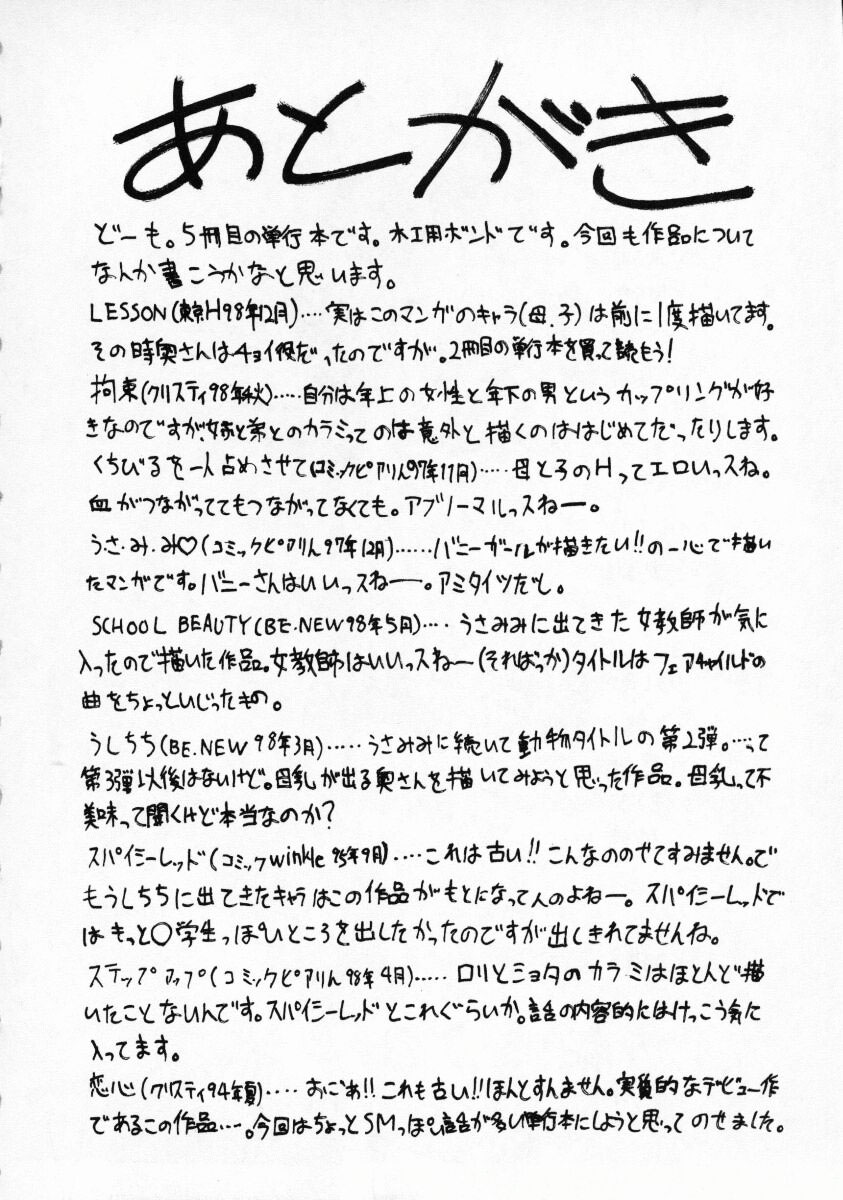 あとがき
どーも。5冊目の単行本です。木工用ボンドです。今回も作品について
なんか書こうかなと思います。
LESSON(東京H98年12月)‥‥実はこのマンガのキャラ(母、子)は前に1度描いてます。
その時奥さんはチョイ役だったのですが。2冊目の単行本を買って読もう!
拘束(クリスティ98年秋)‥‥‥自分は年上の女性と年下の男というカップリングが好
きなのですが、姉と弟とのカラミってのは意外と描くのははじめてだったりします。
くちびるを一人占めさせて(コミックピアリん97年11月)‥‥‥母と子のHってエロいっスね。
血がつながっててもつながってなくても。アブノーマルっスねー。
うさ・み・み♡(コミックピアリん97年12月)‥‥‥バニーガールが描きたい!!の一心で描い
たマンガです。バニーさんはいいっスねー。アミタイツだし。
SCHOOL BEAUTY(BE・NEW98年5月)‥‥うさみみに出てきた女教師が気に
入ったので描いた作品。女教師はいいっスねー(そればっか)タイトルはフェアチャイルドの
曲をちょっといじったもの。
うしちち(BE.NEW 98年3月)‥‥‥うさみみに続いて動物タイトルの第2弾。‥‥って
第3弾以後はないけど。母乳が出る奥さんを描いてみようと思った作品。母乳って不
美味って聞くけど本当なのか?
スパイシーレッド(コミックwinkle 95年9月)‥‥これは古い!!こんなののせてすみません。で
もうしちちに出てきたキャラはこの作品がもとになってんのよねー。スパイシーレッドで
はきっと○学生っぽいところを出したかったのですが出しきれてませんね。
ステップアップ(コミックピアリん98年4月)‥‥‥ロリとショタのカラミはほとんど描
いたことないんです。スパイシーレッドとこれぐらいか。話の内容的にはけっこう気に
入ってます。
恋心(クリスティ94年夏)‥‥おにょ!!これも古い!!ほんとすんません。実質的なデビュー作
であるこの作品‥‥。今回はちょっとSMっぽい話が多い単行本にしようと思ってのせました。